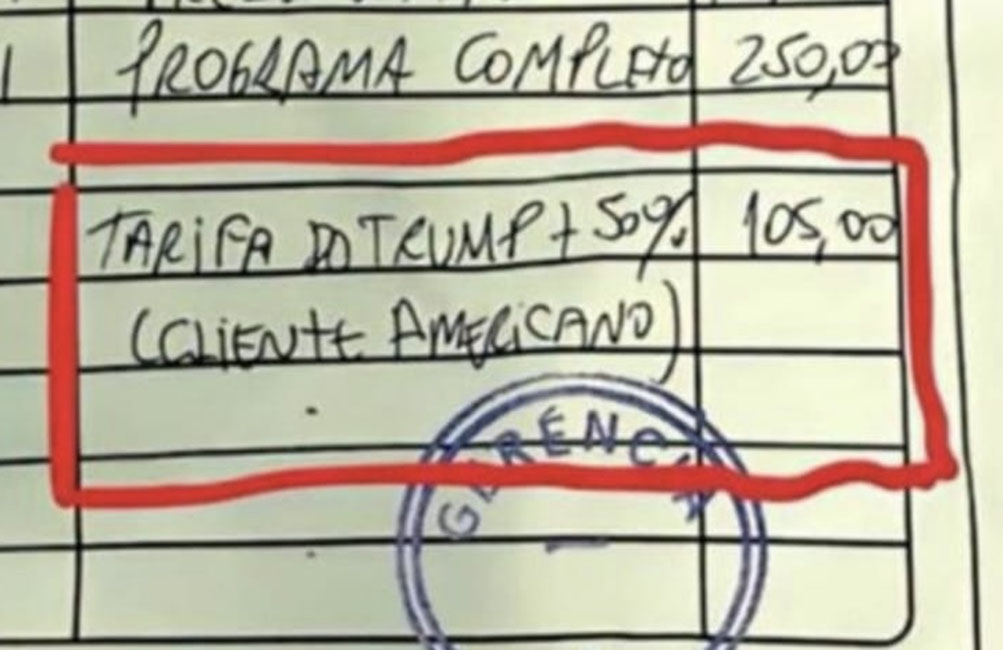 1 PROGRAMA COMPLETO 250,00
TARIFA DO TRUMP + 50% 105,00
(CLIENTE AMERICANO)
GERENCIA